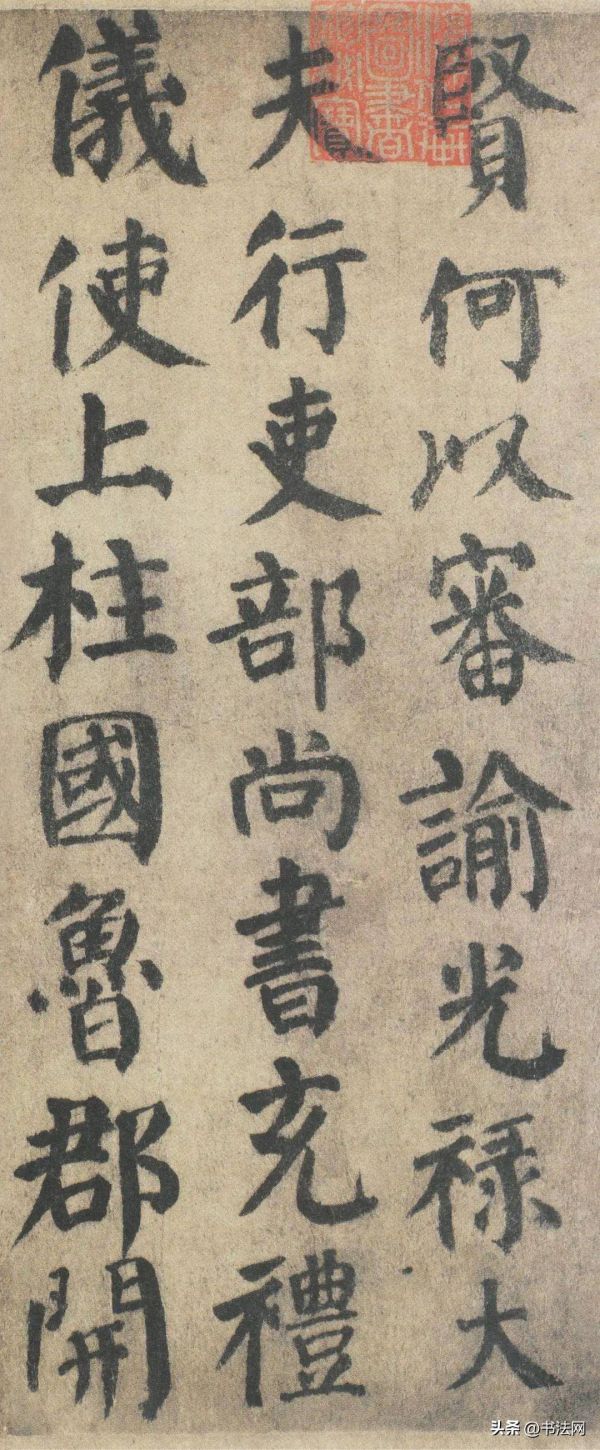 賢何以審諭光祿大
夫行吏部尚書充禮
儀使上柱國魯郡開
头条 @书法网